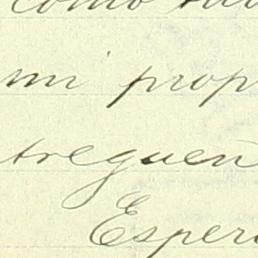 como
mi prop
treguen
Esper